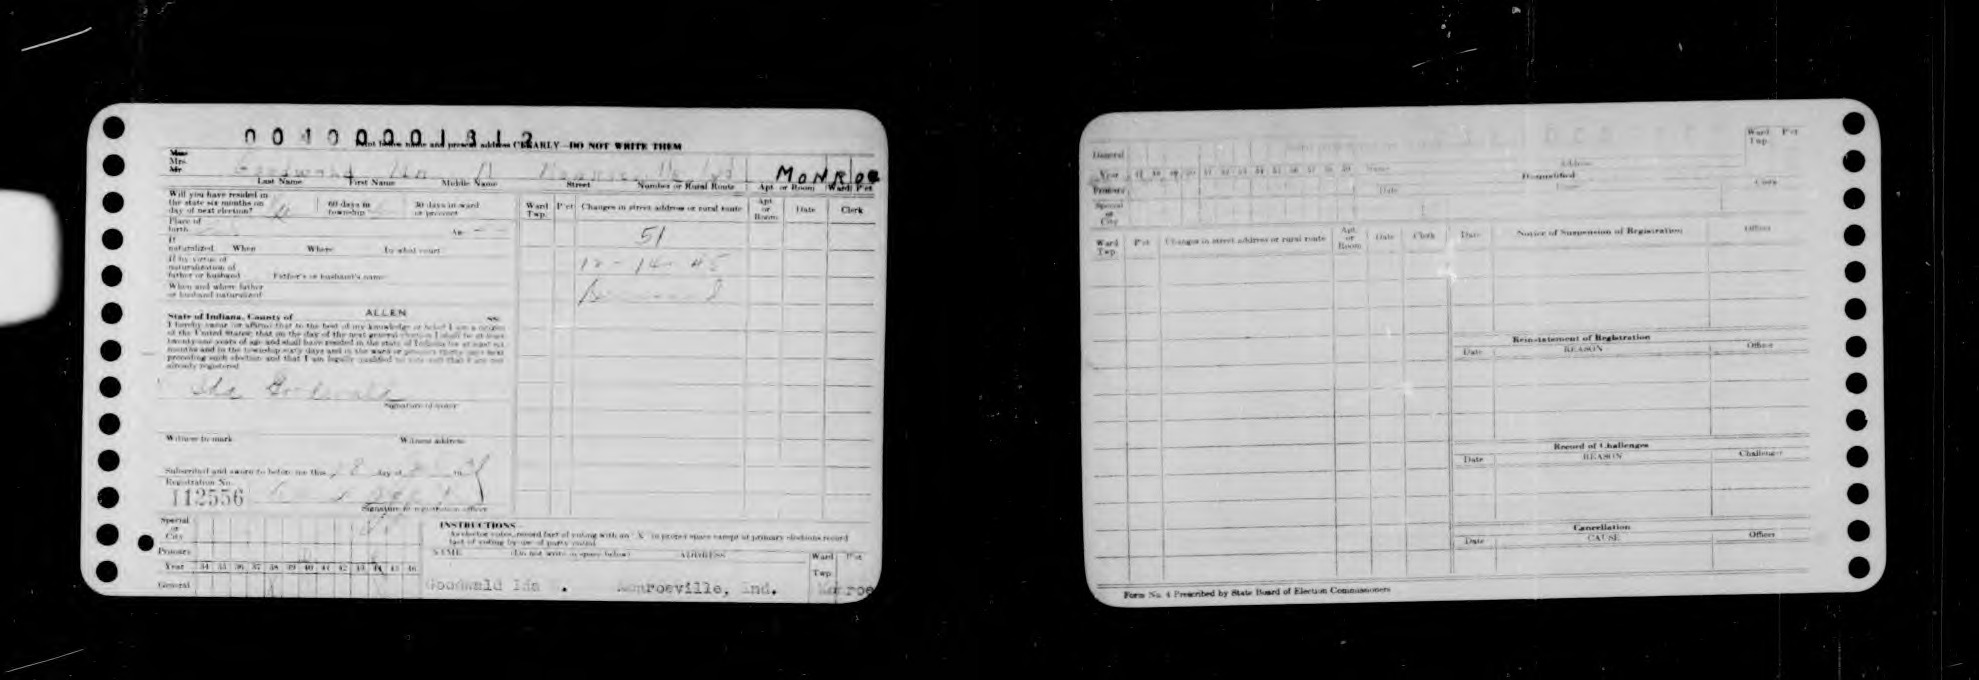 00400001812
Print below name and present address CLEARLY—DO NOT WRITE THEM
Miss
Mrs.
Mr.
Goodwald Ida Monroeville Ind MONROE
Last Name First Name Middle Name Street Number or Rural Route Apt. or Room Ward P'ct
Will you have resided in the state six months on day of next election?
60 days in township
30 days in ward or precinct
Place of birth
If naturalized When Where In what court
If by virtue of naturalization of father or husband Father's or husband's name
When and where father or husband naturalized
State of Indiana, County of ALLEN SS:
I hereby swear (or affirm) that to the best of my knowledge or belief I am a citizen
of the United States; that on the day of the next general election I shall be at least
twenty-one years of age and shall have resided in the state of Indiana for at least six
months and in the township sixty days and in the ward or precinct thirty days next
preceding such election and that I am legally qualified to vote and that I am not
already registered
Ida Goodwald
Signature of voter
Witness to mark Witness address
Subscribed and sworn to before me this 28 day of
Registration No.
112556
Signature of registration officer
Ward Twp. P'ct Changes in street address or rural route Apt. or Room Date Clerk
51
12-14-45
Special or City
Primary
Year 34 35 36 37 38 39 40 41 42 43 44 45 46
General X
INSTRUCTIONS—
As elector votes, record fact of voting with an "X" in proper space except at primary elections record
fact of voting by use of party voted
NAME (Do not write in space below) ADDRESS Ward Twp. P'ct
Goodwald Ida . Monroeville, Ind. Monroe
General
Year 47 48 49 50 51 52 53 54 55 56 57 58 59 Name
Primary
Special or City
Address
Disqualified
Date
Clerk
Ward Twp. P'ct
Ward Twp. P'ct Changes in street address or rural route Apt. or Room Date Clerk
Date Notice of Suspension of Registration Officer
Reinstatement of Registration
Date REASON Officer
Record of Challenges
Date REASON Challenger
Cancellation
Date CAUSE Officer
Form No. 4 Prescribed by State Board of Election Commissioners